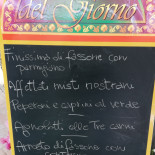 del Giorno
Finissima di fassone con
parmigiano!
Affettati misti nostrani
Peperoni e caprini al verde
Agnolotti alle Tre carni
Arrosto di fassono con